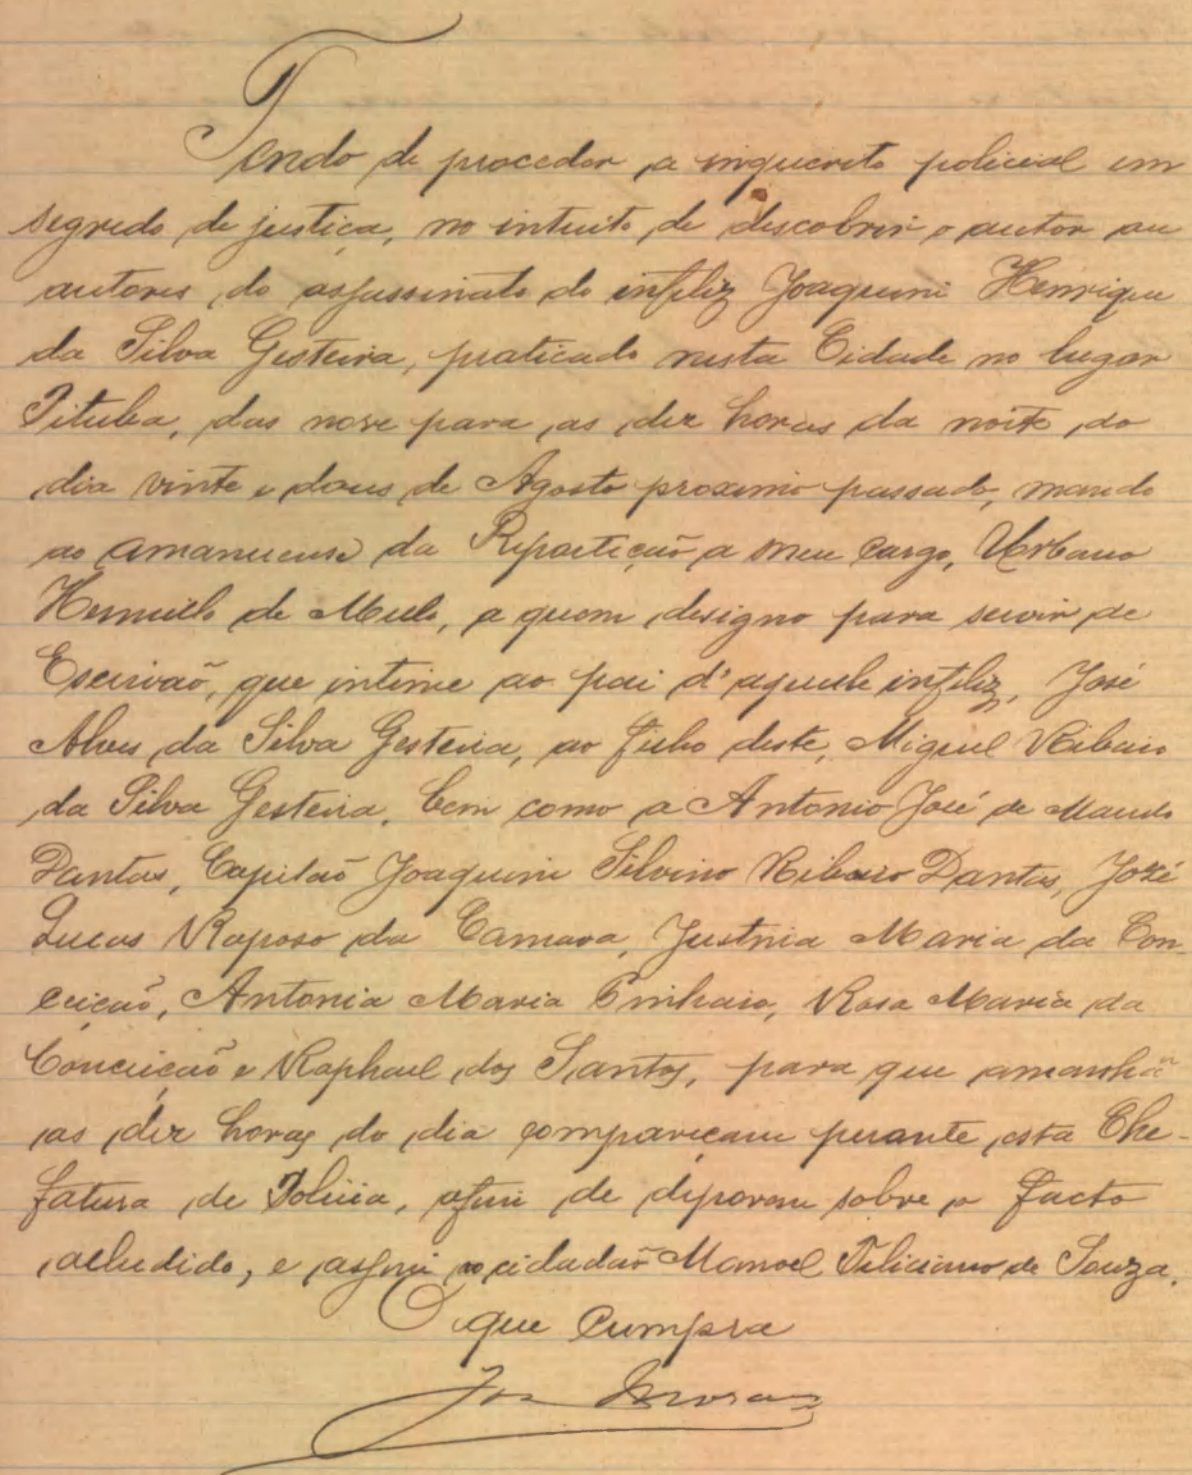 Tendo de proceder a inquerito policial em
segredo de justiça, no intuito de descobrir o autor ou
autores do assassinato do infeliz Joaquim Henrique
da Silva Gesteira, praticado nesta Cidade no lugar
Pituba, das nove para as dez horas da noite do
dia vinte e dous de Agosto proximo passado, mando
ao amanuense da Repartição a meu cargo, Urbano
Hermillo de Mello, a quem designo para servir de
Escrivão, que intime ao pai d'aquele infeliz, José
Alves da Silva Gesteira, ao filho deste, Miguel Ribeiro
da Silva Gesteira, bem como a Antonio José de Macedo
Dantas, Capitão Joaquim Silvino Ribeiro Dantas, José
Lucas Raposo da Camara, Justina Maria da Con-
ceição, Antonia Maria Pinheiro, Rosa Maria da
Conceição e Raphael dos Santos, para que amanhã
as dez horas do dia compareçam perante esta Che-
fatura de Policia, afim de deporem sobre o facto
alludido, e assim ao cidadão Manoel Feliciano de Souza.
O que cumpra